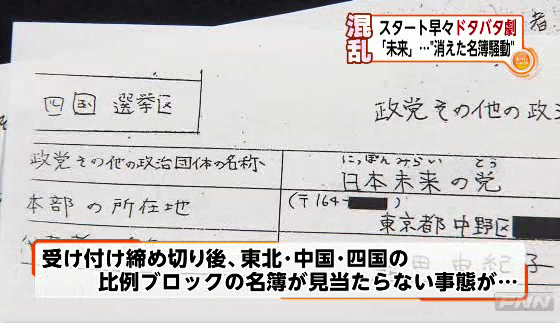 混乱
スタート早々ドタバタ劇
「未来」…"消えた名簿騒動"
者
四国 選挙区
政党その他の政
政党その他の政治団体の名称
にっぽんみらい とう
日本未来の党
本部の所在地
(〒164-
東京都中野区
田 由紀子
受け付け締め切り後、東北・中国・四国の
比例ブロックの名簿が見当たらない事態が…
FNN